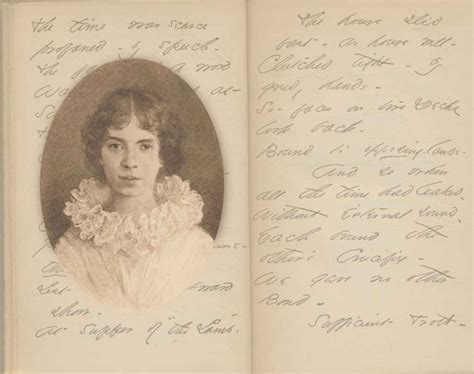 the time was scarce
profaned - by speech -
the word
Was
as -
Lest awkward
show -
at Supper of "the Lamb".
The hours slid
fast - as hours will -
Clutched tight - by
greedy hands -
So faces on two Decks
look back -
Bound to opposing lands -
And so when
all the time had leaked,
Without External Sound,
Each bound the
other's Crucifix -
We gave no other
Bond -
Sufficient troth -